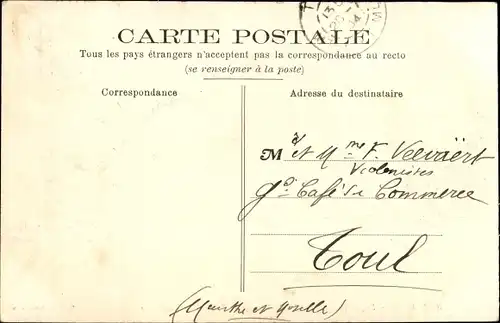 CARTE POSTALE
Tous les pays étrangers n'acceptent pas la correspondance au recto
(se renseigner à la poste)
Correspondance
Adresse du destinataire
Mr et Mme F. Veevaërt
Violonistes
Gd Café de Commerce
Toul
(Meurthe et Moselle)